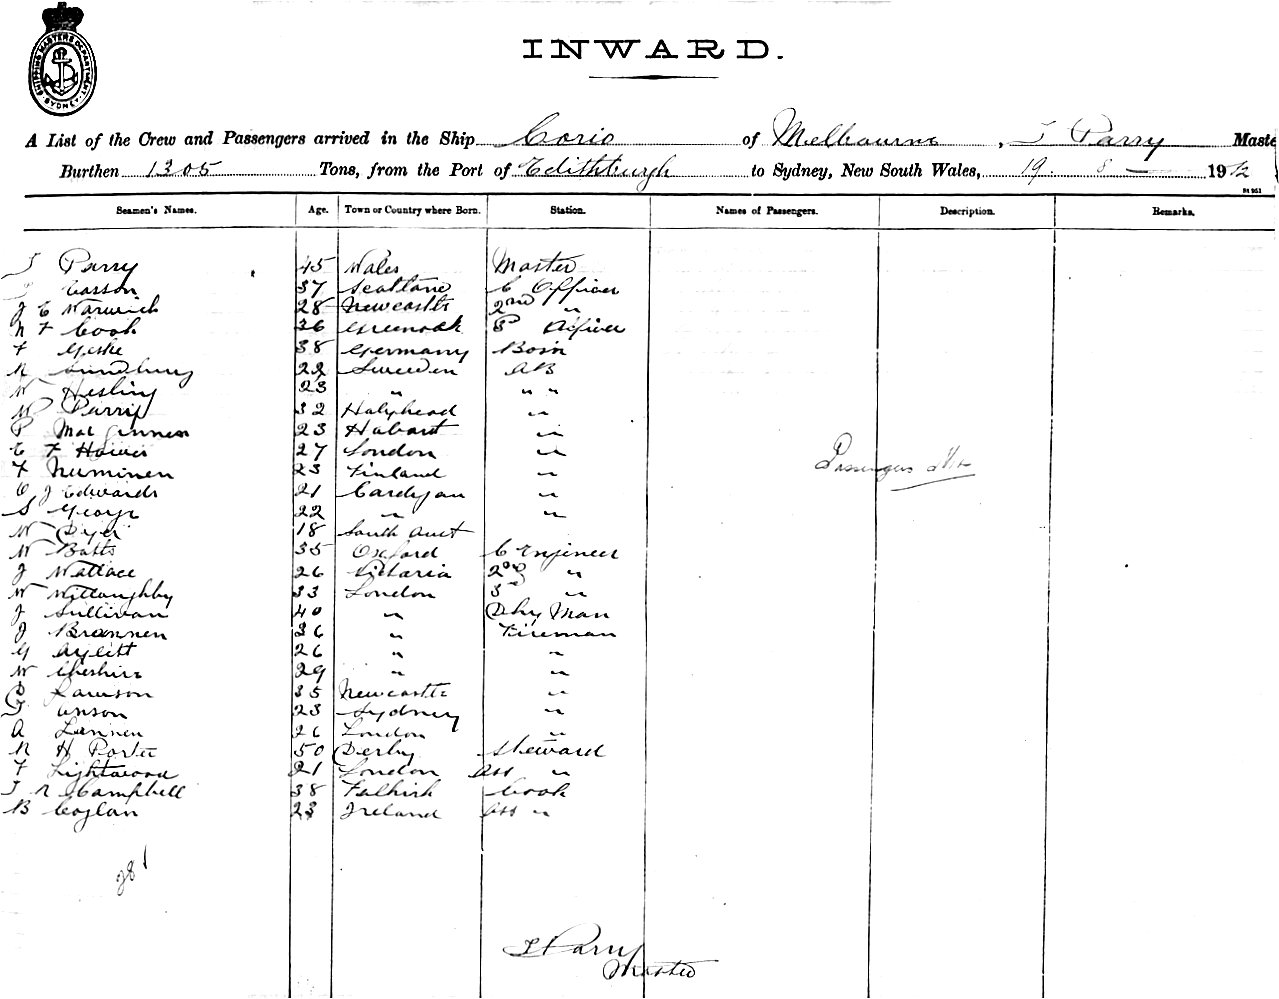 SHIPPING MASTERS DEPARTMENT SYDNEY
INWARD.
A List of the Crew and Passengers arrived in the Ship Corio of Melbourne, T Parry Maste
Burthen 1305 Tons, from the Port of Edithburgh to Sydney, New South Wales, 19. 8 — 1912
Seamen's Names. Age. Town or Country where Born. Station. Names of Passengers. Description. Remarks.
T Parry 45 Wales Master
Casson 37 Scotland C Officer
J C Warwick 28 Newcastle 2nd "
N F Cook 36 Greenock 3 Officer
F Geske 38 Germany Bosn
N Sundburg 22 Sweden AB
W Hesling 23 " " "
W Parry 32 Holyhead "
P Mac Ginnes 23 Hobart "
C F Hawes 27 London "
F Numinen 23 Finland "
C J Edwards 21 Cardigan "
S George 22 " "
W Dyer 18 South Aust
W Batts 35 Oxford C Engineer
J Wallace 26 Victoria 2nd "
W Willoughby 33 London 3rd "
J Sullivan 40 " Dky Man
J Brannen 36 " Fireman
G Aylett 26 " "
W Cheshire 29 " "
Lawson 35 Newcastle "
Anson 23 Sydney "
A Lannen 26 London "
N H Porter 50 Derby Steward
F Lightwood 21 London Ass "
T R Campbell 38 Falkirk Cook
B Coglan 23 Ireland Ass "
Passengers Nil
28
T Parry
Master